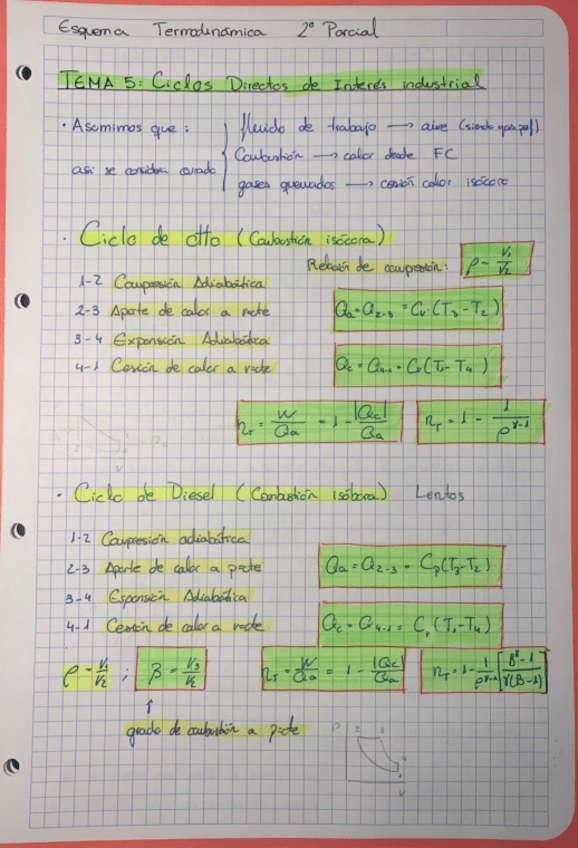 Esquema Termodinámica 2º Parcial
TEMA 5: Ciclos Directos de Interés industrial
· Asumimos que : fluido de trabajo → aire (siendo gas perf)
Combustión → calor desde FC
así se considera cerrado
gases quemados → cesión calor isócora
· Ciclo de otto (Combustión isócora)
Relación de compresión: ρ = V₁/V₂
1-2 Compresión Adiabática
2-3 Aporte de calor a v=cte Qa = Q₂₋₃ = Cv (T₃ - T₂)
3-4 Expansión Adiabática
4-1 Cesión de calor a v=cte Qc = Q₄₋₁ = Cv (T₁ - T₄)
η_T = W/Qa = 1 - |Qc|/Qa η_T = 1 - 1/ρ^(γ-1)
V
· Ciclo de Diesel (Combustión isóbara) Lentos
1-2 Compresión adiabática
2-3 Aporte de calor a p=cte Qa = Q₂₋₃ = Cp (T₃ - T₂)
3-4 Expansión Adiabática
4-1 Cesión de calor a v=cte Qc = Q₄₋₁ = Cv (T₁ - T₄)
ρ = V₁/V₂ ; β = V₃/V₂ η_T = W/Qa = 1 - |Qc|/Qa η_T = 1 - 1/ρ^(γ-1) [β^γ - 1 / γ(β - 1)]
↑
grado de combustión a p=cte
P 2 3
4
1
V